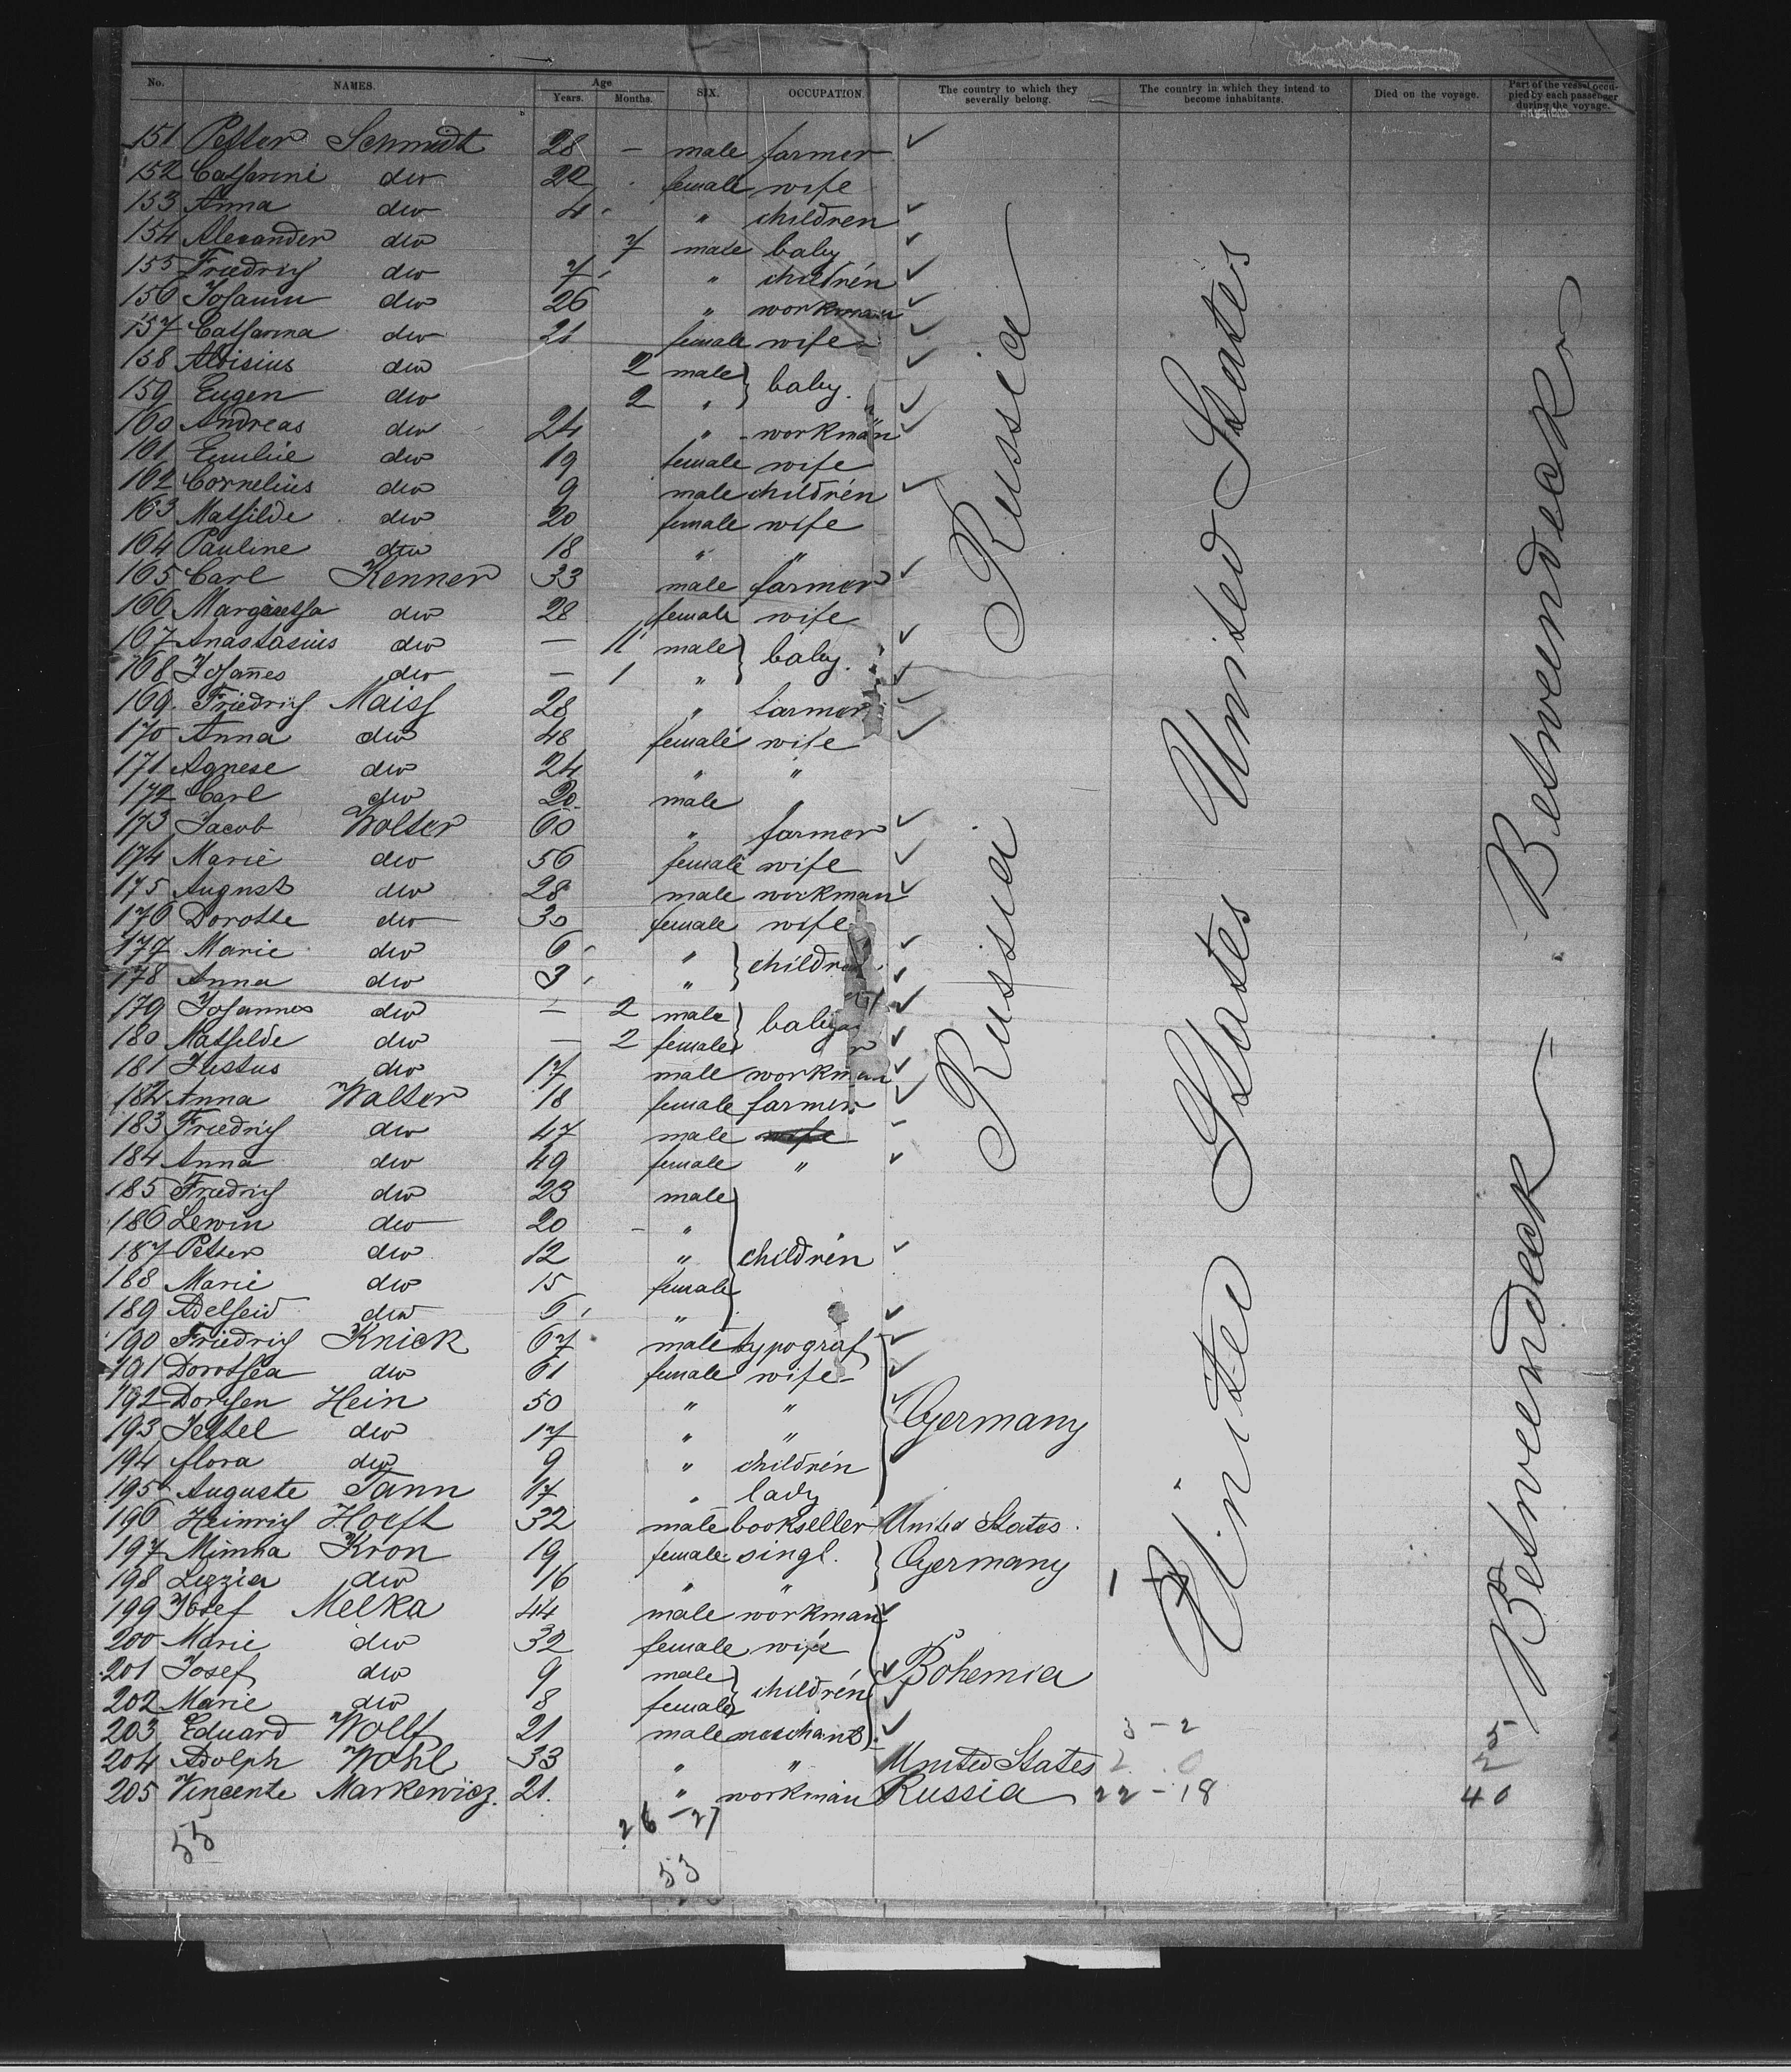 No. NAMES. Age Years. Months. SIX. OCCUPATION. The country to which they severally belong. The country in which they intend to become inhabitants. Died on the voyage. Part of the vessel occupied by each passenger during the voyage.
151 Petter Schmidt 28 — male farmer
152 Catharine dw 22 female wife
153 Anna dw 4 " children
154 Alexander dw 7 male baby
155 Friedrich dw 7 " children
156 Johann dw 26 " workman
157 Catharina dw 21 female wife
158 Aloisius dw 2 male baby.
159 Eugen dw 2 "
160 Andreas dw 24 " workman
161 Emilie dw 19 female wife
162 Cornelius dw 9 male children
163 Mathilde dw 20 female wife
164 Pauline dw 18 " "
165 Carl Kenner 33 male farmer
166 Margaretha dw 28 female wife
167 Anastasius dw — 11 male baby.
168 Johannes dw — 1 "
169 Friedrich Maisch 28 " farmer
170 Anna dw 48 female wife
171 Agnese dw 24 " "
172 Carl dw 20 male
173 Jacob Wolter 60 " farmer
174 Marie dw 56 female wife
175 August dw 28 male workman
176 Dorothe dw 30 female wife
177 Marie dw 6 " children
178 Anna dw 3 "
179 Johannes dw — 2 male baby
180 Mathilde dw — 2 female
181 Justus dw 17 male workman
182 Anna Walter 18 female farmer
183 Friedrich dw 47 male wife
184 Anna dw 49 female "
185 Friedrich dw 23 male
186 Lewin dw 20 — "
187 Petter dw 12 " children
188 Marie dw 15 female
189 Adelheid dw 5 "
190 Friedrich Knick 67 male typograf
191 Dorothea dw 61 female wife
192 Dorchen Hein 50 " " Germany
193 Jettel dw 17 " "
194 flora dw 9 " children
195 Auguste Tann 17 " lady
196 Heinrich Hoeft 32 male bookseller United States.
197 Minna Kron 19 female singl. Germany
198 Lizzia dw 16 " "
199 Josef Melka 44 male workman
200 Marie dw 32 female wife
201 Josef dw 9 male children Bohemia
202 Marie dw 8 female
203 Eduard Wolff 21 male merchant 3-2 5
204 Adolph Wohl 33 " " United States 2 0 2
205 Vincente Markewicz. 21. " workman Russia 22-18 40
Russia
Russia
United States
United States
Betweendeck
Betweendeck
1-2
55
26-27
53